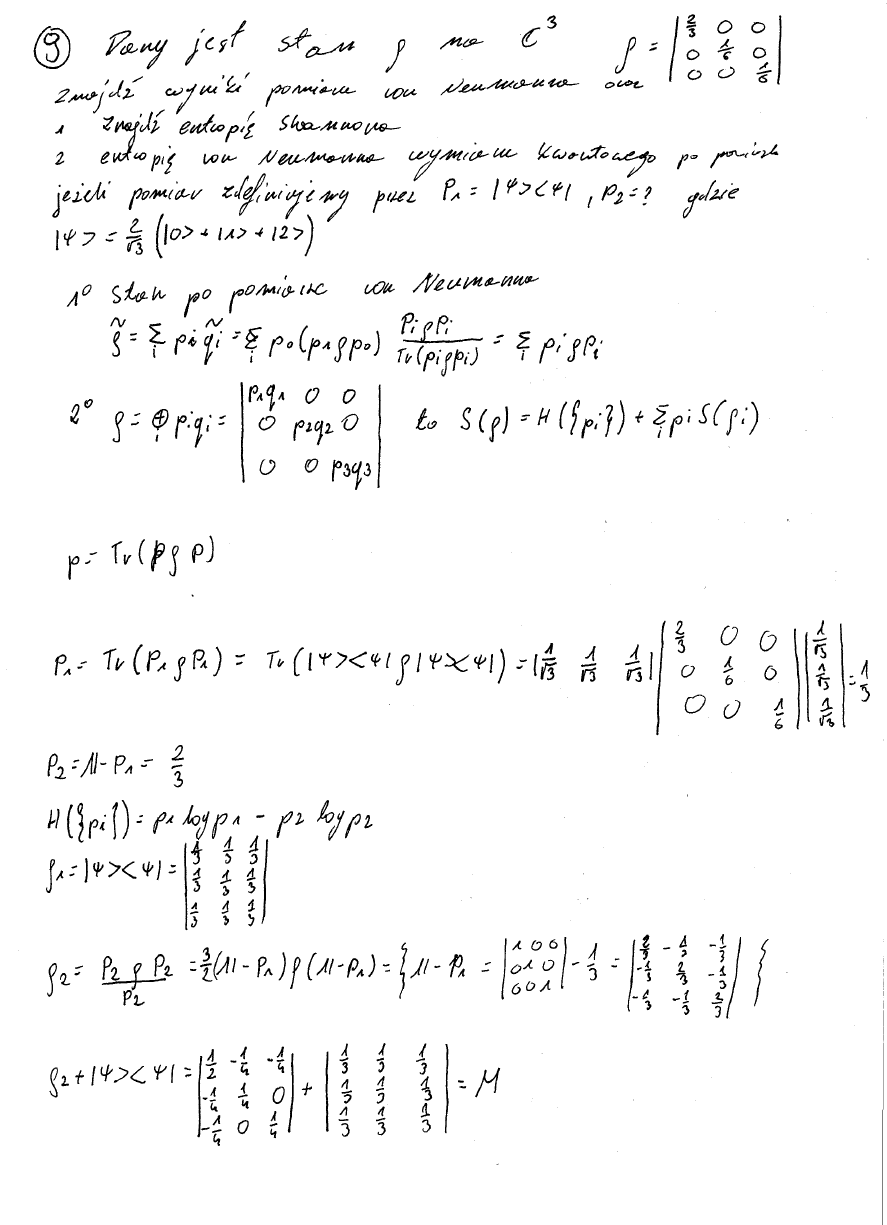 9 Dany jest stan ρ na ℂ³ ρ = |2/3 0 0; 0 1/6 0; 0 0 1/6|
Znajdź wyniki pomiaru von Neumanna oraz
1 Znajdź entropię Shannona
2 entropię von Neumanna wymiaru kwantowego po pomiarze
jeżeli pomiar zdefiniujemy przez P₁ = |Ψ><Ψ|, P₂=? gdzie
|Ψ> = 2/√3 (|0> + |1> + |2>)
1⁰ Stan po pomiarze von Neumanna
ρ̃ = Σᵢ pᵢ q̃ᵢ = Σᵢ p₀(p₁ρp₀) PᵢρPᵢ/Tr(pᵢρpᵢ) = Σᵢ pᵢρPᵢ
2⁰ ρ = ⊕ᵢ pᵢqᵢ = |p₁q₁ 0 0; 0 p₂q₂ 0; 0 0 p₃q₃| to S(ρ) = H({pᵢ}) + Σᵢ pᵢ S(ρᵢ)
p = Tr(PρP)
P₁ = Tr(P₁ρP₁) = Tr(|Ψ><Ψ|ρ|Ψ><Ψ|) = |1/√3 1/√3 1/√3| |2/3 0 0; 0 1/6 0; 0 0 1/6| |1/√3; 1/√3; 1/√3| = 1/3
P₂ = 1I - P₁ = 2/3
H({pᵢ}) = p₁ log p₁ - p₂ log p₂
ρ₁ = |Ψ><Ψ| = |1/3 1/3 1/3; 1/3 1/3 1/3; 1/3 1/3 1/3|
ρ₂ = P₂ρP₂/P₂ = 3/2(1I - P₁)ρ(1I - P₁) = { 1I - P₁ = |1 0 0; 0 1 0; 0 0 1| - 1/3 = |2/3 -1/3 -1/3; -1/3 2/3 -1/3; -1/3 -1/3 2/3| }
ρ₂ + |Ψ><Ψ| = |1/2 -1/4 -1/4; -1/4 1/4 0; -1/4 0 1/4| + |1/3 1/3 1/3; 1/3 1/3 1/3; 1/3 1/3 1/3| = M